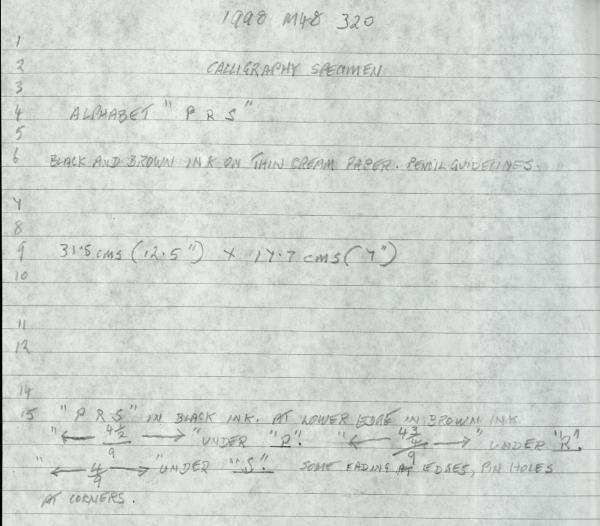 1998 M48 320
1
2 CALLIGRAPHY SPECIMEN
3
4 ALPHABET "P R S"
5
6 BLACK AND BROWN INK ON THIN CREAM PAPER. PENCIL GUIDELINES.
7
8
9 31.5 cms (12.5") X 17.7 cms (7")
10
11
12
14
15 "P R S" IN BLACK INK. AT LOWER EDGE IN BROWN INK
"← 4½/9 →" UNDER "P". "← 4¾/9 →" UNDER "R".
"← 4/9 →" UNDER "S". SOME FADING AT EDGES, PIN HOLES
AT CORNERS.